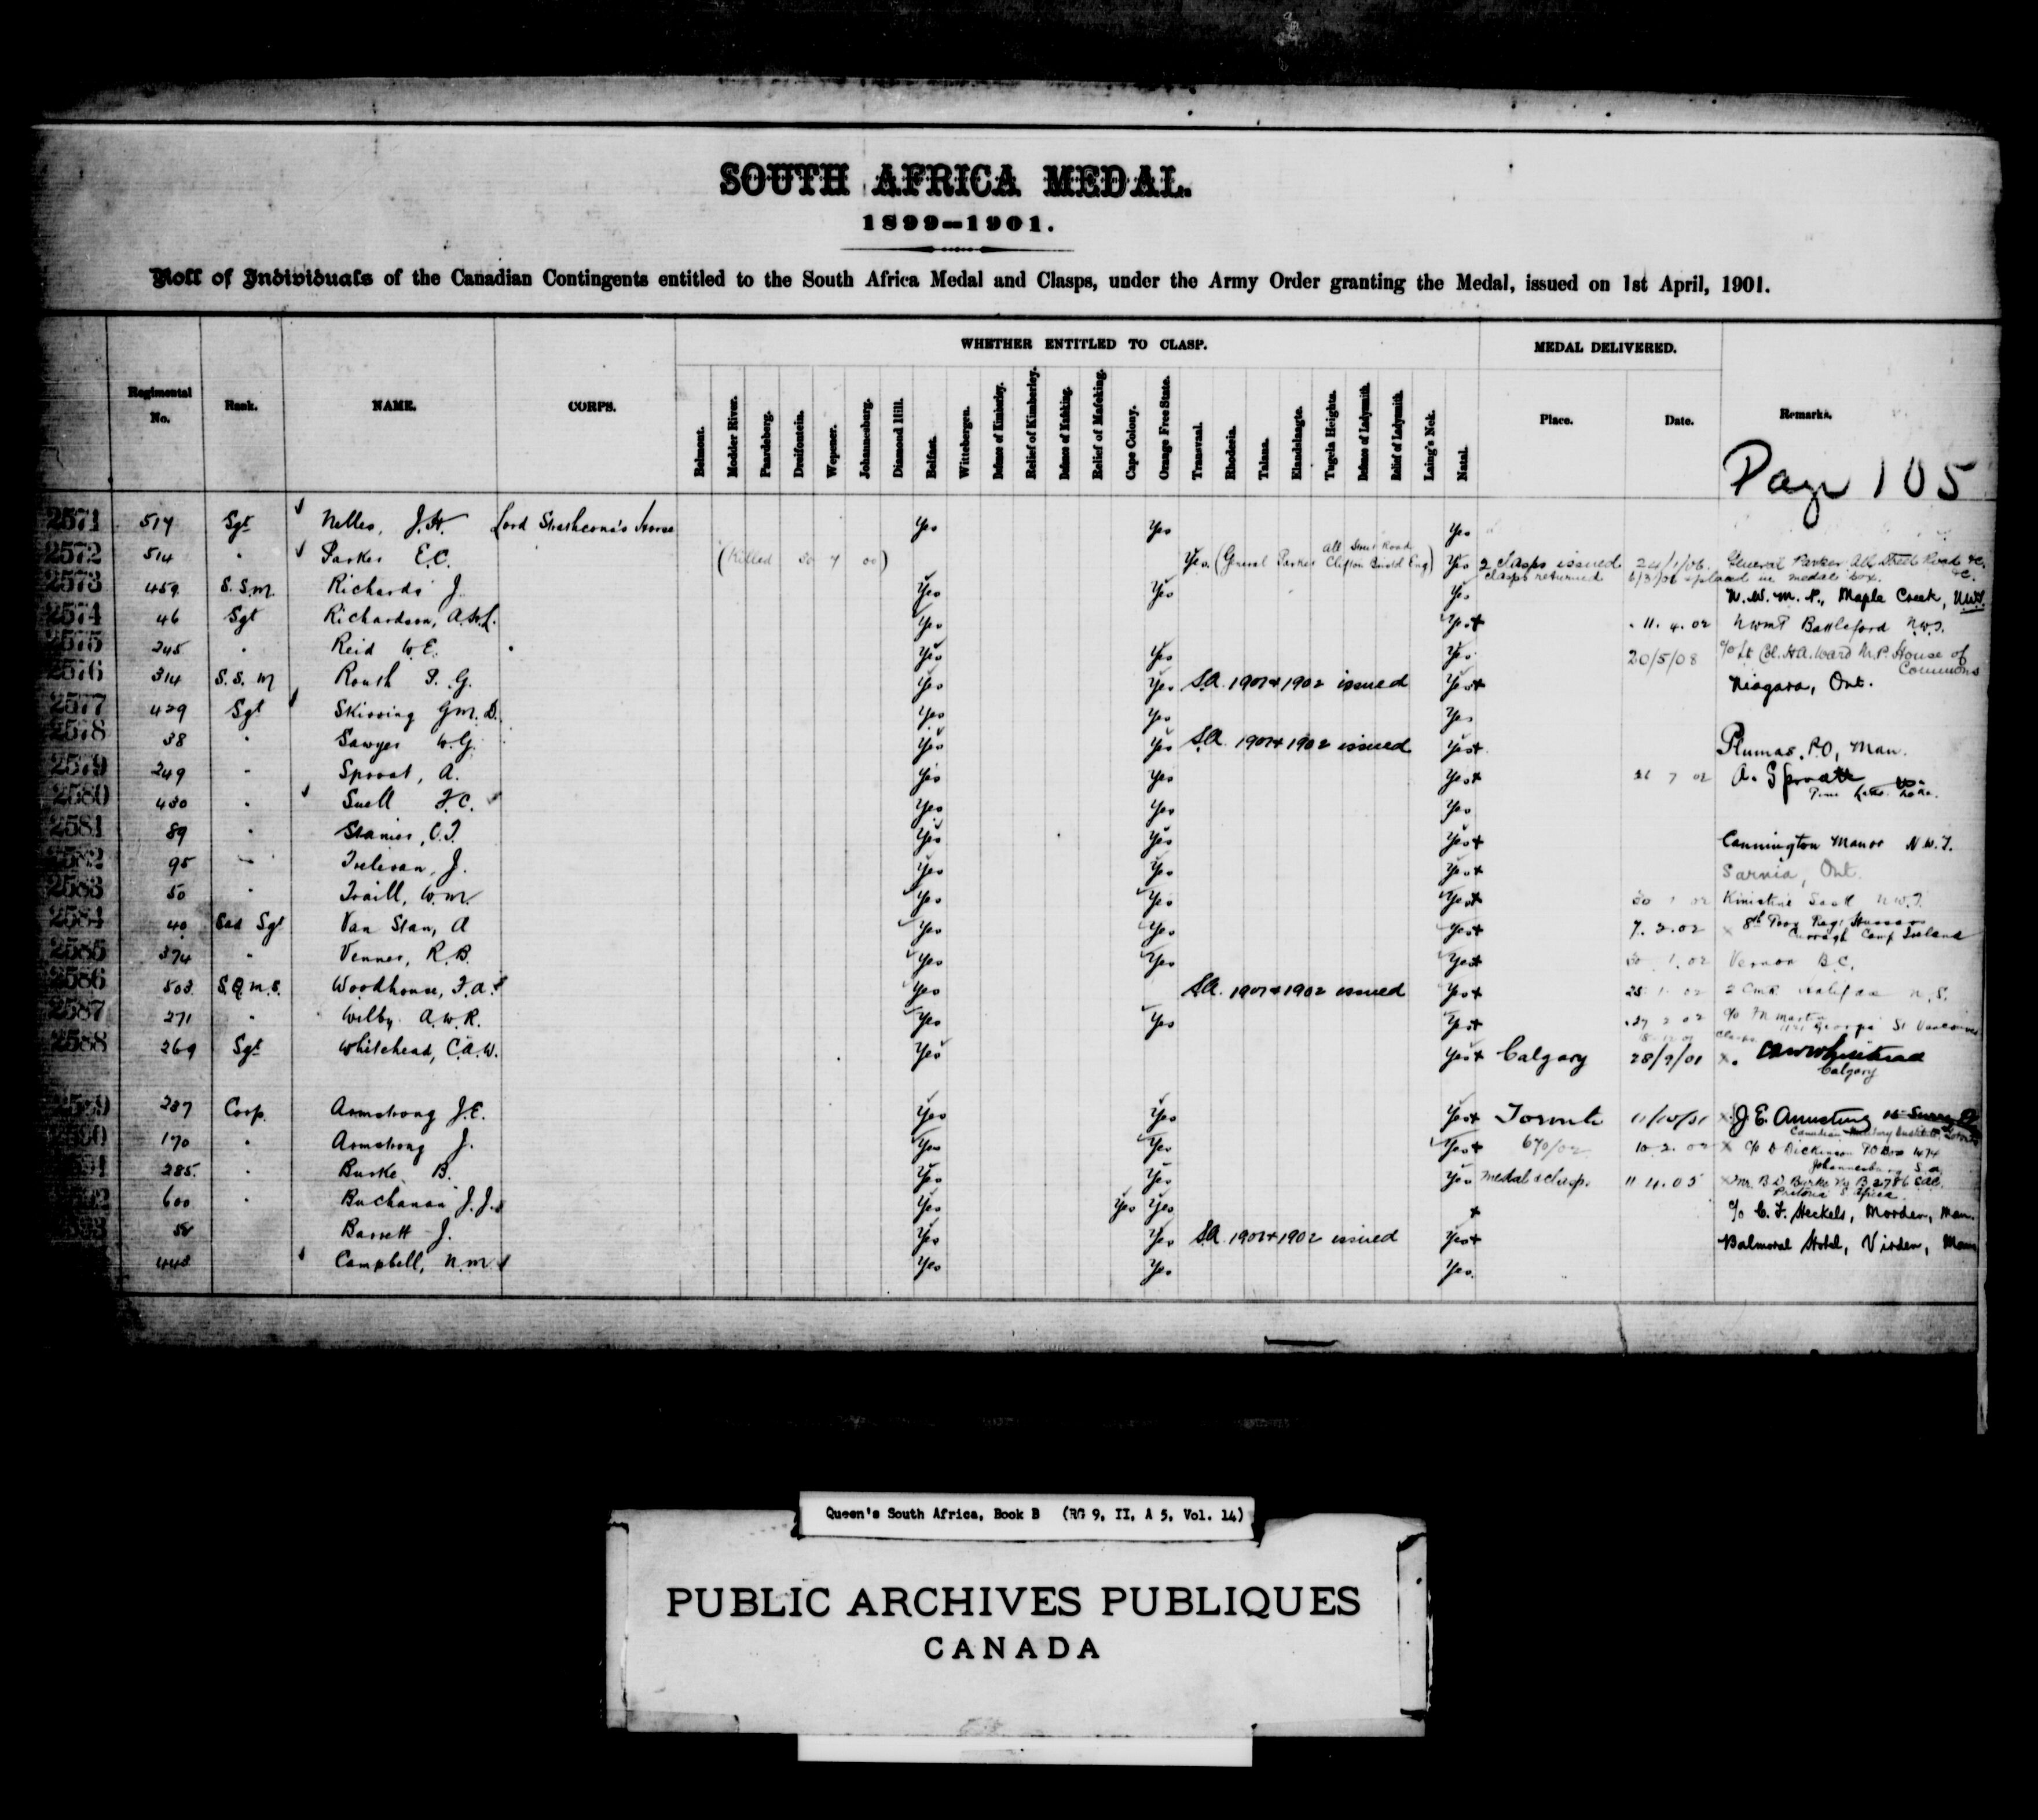 SOUTH AFRICA MEDAL.
1899--1901.
Roll of Individuals of the Canadian Contingents entitled to the South Africa Medal and Clasps, under the Army Order granting the Medal, issued on 1st April, 1901.
WHETHER ENTITLED TO CLASP. MEDAL DELIVERED.
Regimental No. Rank. NAME. CORPS. Belmont. Modder River. Paardeberg. Dreifontein. Wepener. Johannesburg. Diamond Hill. Belfast. Wittebergen. Defence of Kimberley. Relief of Kimberley. Defence of Mafeking. Relief of Mafeking. Cape Colony. Orange Free State. Transvaal. Rhodesia. Talana. Elandslaagte. Tugela Heights. Defence of Ladysmith. Relief of Ladysmith. Laing's Nek. Natal. Place. Date. Remarks.
Page 105
2571 517 Sgt Nelles, J.H. Lord Strathcona's Horse Yes Yes Yes
2572 514 " Parker E.C. (Killed 30 7 00) Yes (General Parker Clifton Eng) Yes 2 clasps issued 24/1/06. General Parker All Street Road &c.
clasps returned 6/3/06 & placed in medal box. &c.
2573 459 S.S.M. Richards J Yes Yes Yes N.W.M.P., Maple Creek, N.W.T.
2574 46 Sgt Richardson, A.H.L. Yes Yes+ 11.4.02 NWMP Battleford N.W.T.
2575 245 " Reid W.E. " Yes Yes Yes 20/5/08 c/o Lt Col. H.A. Ward M.P. House of Commons
2576 314 S.S.M Routh P.G. Yes Yes S.A. 1901+1902 issued Yes+ Niagara, Ont.
2577 429 Sgt Skirving G.M.D. Yes Yes Yes
2578 38 " Sawyer W.G. Yes Yes S.A. 1901+1902 issued Yes+ Plumas, P.O, Man.
2579 249 " Sproat, A. Yes Yes Yes+ 26 7 02 A. Sproat
2580 430 " Snell F.C. Yes Yes Yes
2581 89 " Stanier, C.F. Yes Yes Yes+ Cannington Manor N.W.T.
2582 95 " Trelevan, J. Yes Yes Yes+ Sarnia, Ont.
2583 50 " Traill, W.M. Yes Yes Yes+ 30 1 02 Kinistino Sask N.W.T.
2584 40 Sad Sgt Van Stan, A Yes Yes Yes+ 7.2.02 8th Prov Regt Hussars
Curragh Camp Ireland
2585 374 " Vennes, R.B. Yes Yes Yes+ 30 1.02 Vernon B.C.
2586 503 S.Q.M.S. Woodhouse, F.A. Yes S.A. 1901+1902 issued Yes+ 25 1 02 2 CMR Halifax N.S.
2587 271 " Wilby A.W.R. Yes Yes Yes+ 27 2 02 c/o Martin Georgia St Vancouver
2588 269 Sgt Whitehead, C.A.W. Yes Yes+ Calgary 28/9/01 x. CAW Whitehead
Calgary
2589 237 Corp. Armstrong J.E. Yes Yes Yes+ Toronto 11/10/01 x J E Armstrong
Canadian Military Institute, Toronto
2590 170 " Armstrong J. Yes Yes Yes+ 670/02 10.2.02 x c/o D Dickinson PO Box 1474
Johannesburg S.A.
2591 285. " Burke B. Yes Yes Yes medal & clasp. 11.4.05 x Mr B.D. Burke No B 2786 SAC.
Pretoria S Africa.
2592 600 " Buchanan J.J. Yes Yes Yes + c/o C.F. Heckels, Morden, Man.
Barrett J. Yes Yes S.A. 1901+1902 issued Yes+ Balmoral Hotel, Virden, Man
448 Campbell, N.M Yes Yes Yes.
Queen's South Africa, Book B (RG 9, II, A 5, Vol. 14)
PUBLIC ARCHIVES PUBLIQUES
CANADA